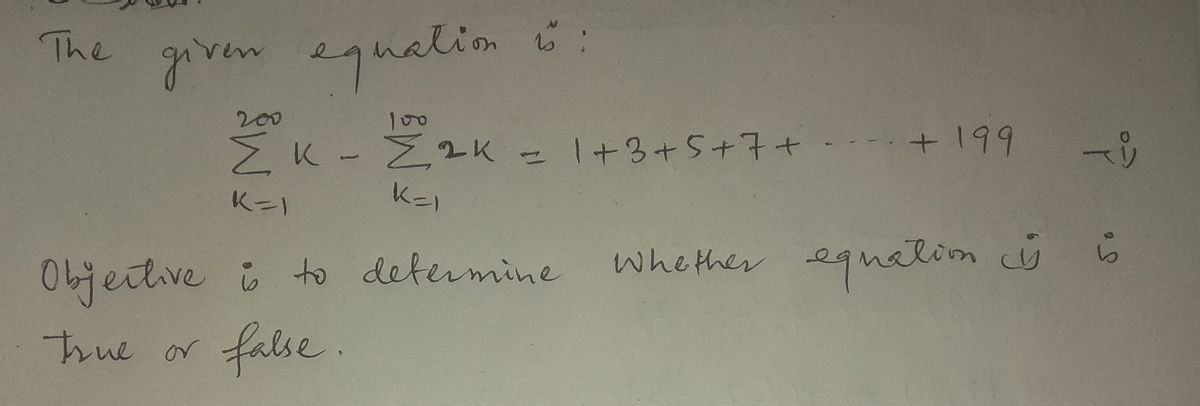 The given equation is :
200 100
Σ K - Σ 2K = 1+3+5+7+ ----- + 199 —(i)
K=1 K=1
Objective is to determine whether equation (i) is
true or false.